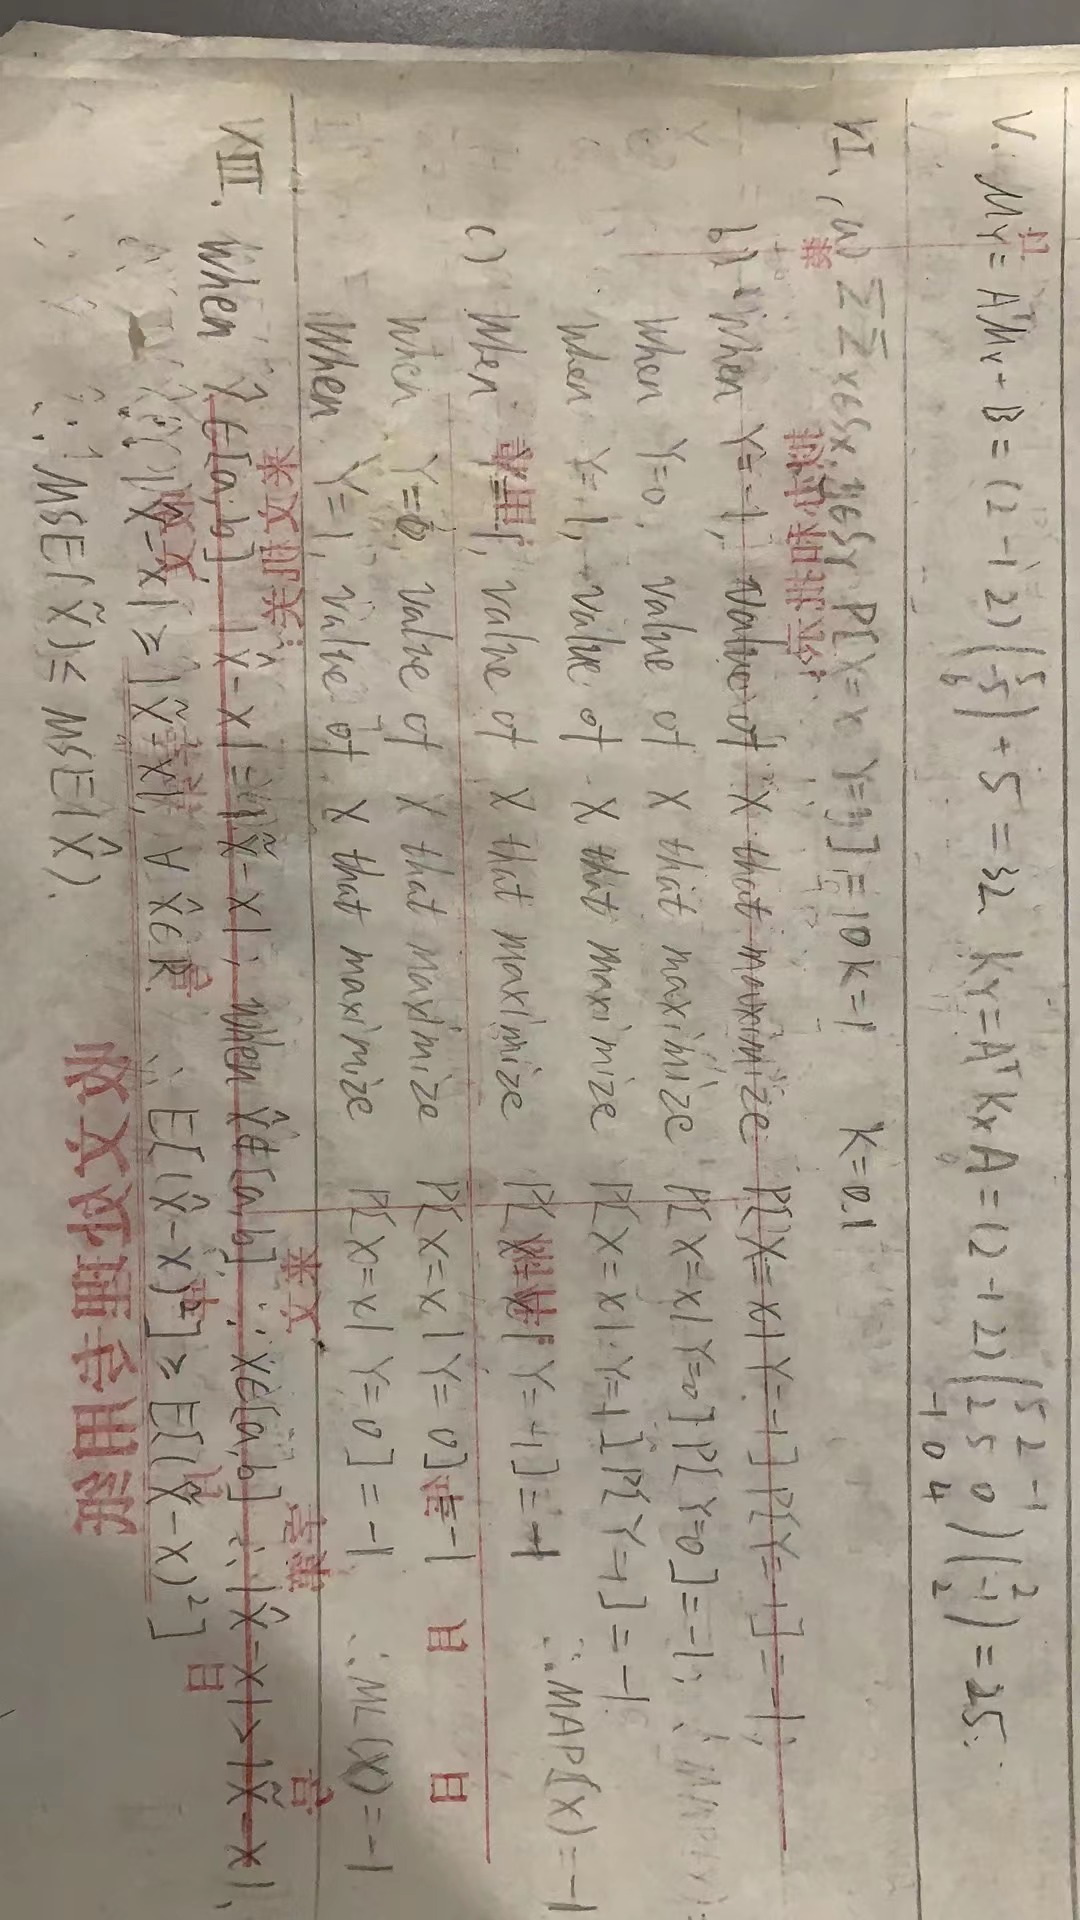 V. My = AᵀMx + B = (2 -1 2) (5 -5 6) + 5 = 32. Ky = Aᵀ Kx A = (2 -1 2) (5 2 -1 2 5 0 -1 0 4) (2 -1 2) = 25.
VI., a) ΣΣ x∈Sx, y∈Sy P[X=x Y=y] = 10k=1 K=0.1
b) When Y=-1, value of X that maximize P[X=x|Y=-1]P[Y=-1]=-1;
When Y=0, value of X that maximize P[X=x|Y=0]P[Y=0]=-1;
When Y=1, value of X that maximize P[X=x|Y=1]P[Y=1]=-1.
∴MAP(X)=-1
c) When Y=-1, value of X that maximize P[X=x|Y=-1]=-1
When Y=0, value of X that maximize P[X=x|Y=0]=-1
When Y=1, value of X that maximize P[X=x|Y=0]=-1. ∴ML(X)=-1
VIII. When X̂∈[a,b], |X̂-X|=|X̃-X|; when X̂∉[a,b] ∵X∈[a,b] ∴|X̂-X|>|X̃-X|,
|X̂-X|≥|X̃-X|, ∀X̂∈R. ∴E[(X̂-X)²]≥E[(X̃-X)²]
∴MSE(X̃)≤MSE(X̂).
收文处理专用纸